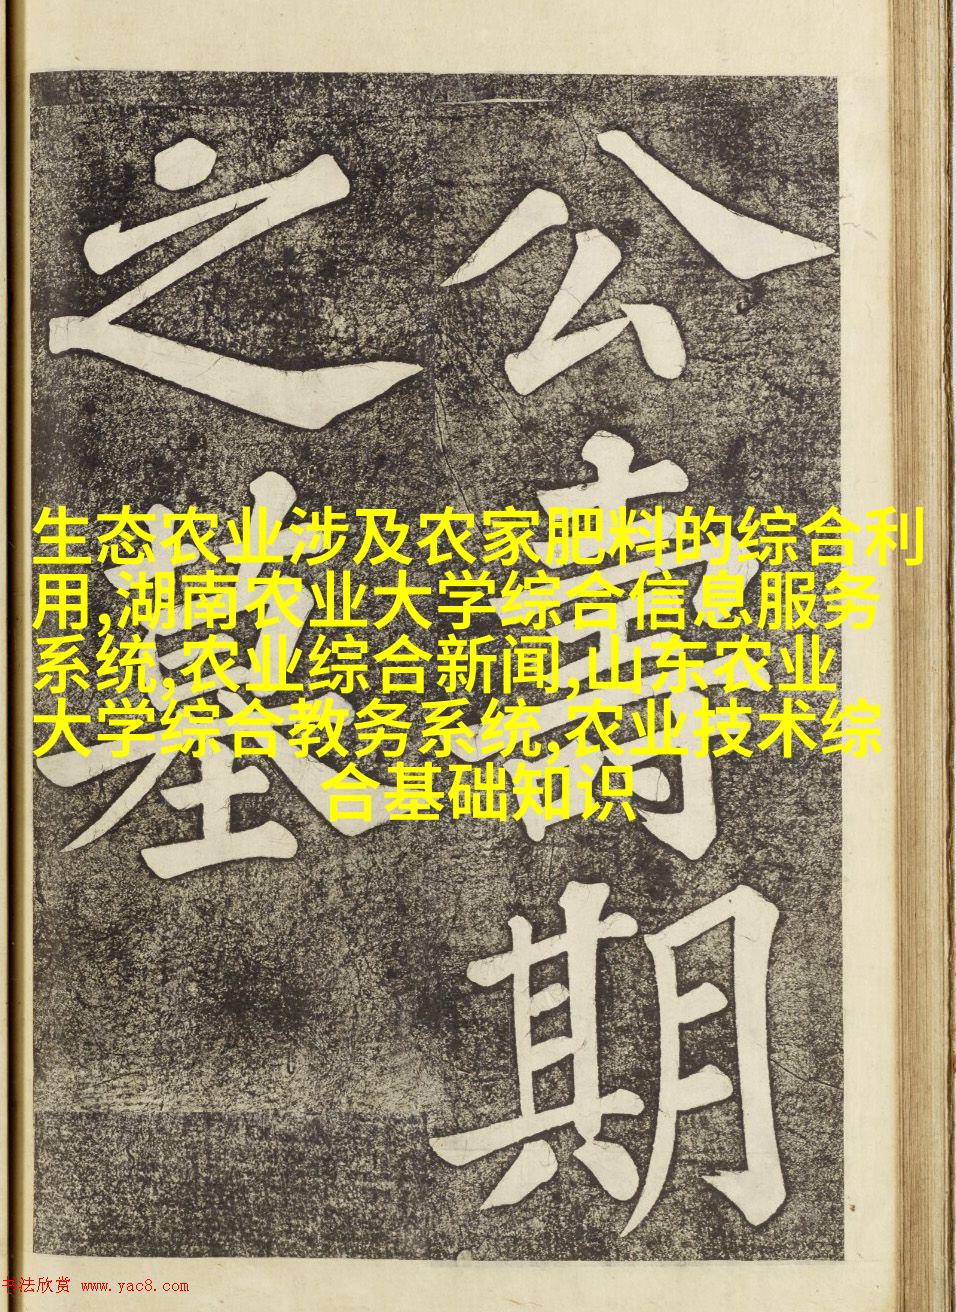 公壽期
之墓
生态农业涉及农家肥料的综合利
用,湖南农业大学综合信息服务
系统,农业综合新闻,山东农业
大学综合教务系统,农业技术综
合基础知识
书法欣赏 www.yac8.com